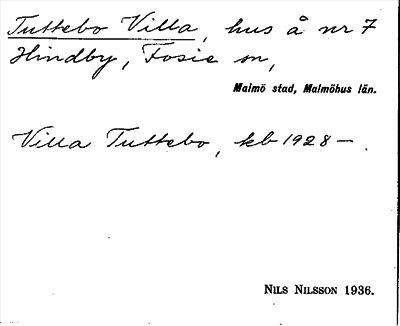 Tuttebo Villa, hus å nr 7
Hindby, Fosie sn,
Malmö stad, Malmöhus län.
Villa Tuttebo, kb 1928 — .
NILS NILSSON 1936.